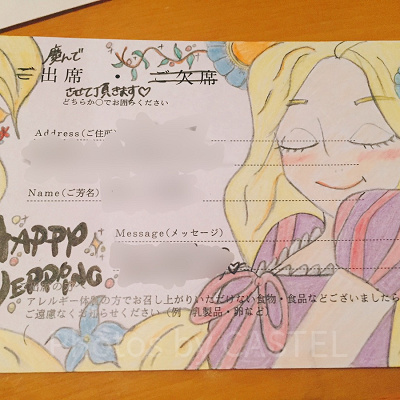 慶んで
ご出席 ・ ご欠席
させて頂きます♡
どちらか○でお囲みください
Address(ご住所)
Name(ご芳名)
HAPPY
WEDDING
Message(メッセージ)
アレルギー体質の方でお召し上がりいただけない食物・食品などございましたら
ご遠慮なくお知らせください (例 乳製品・卵など)
Photos by CASTEL